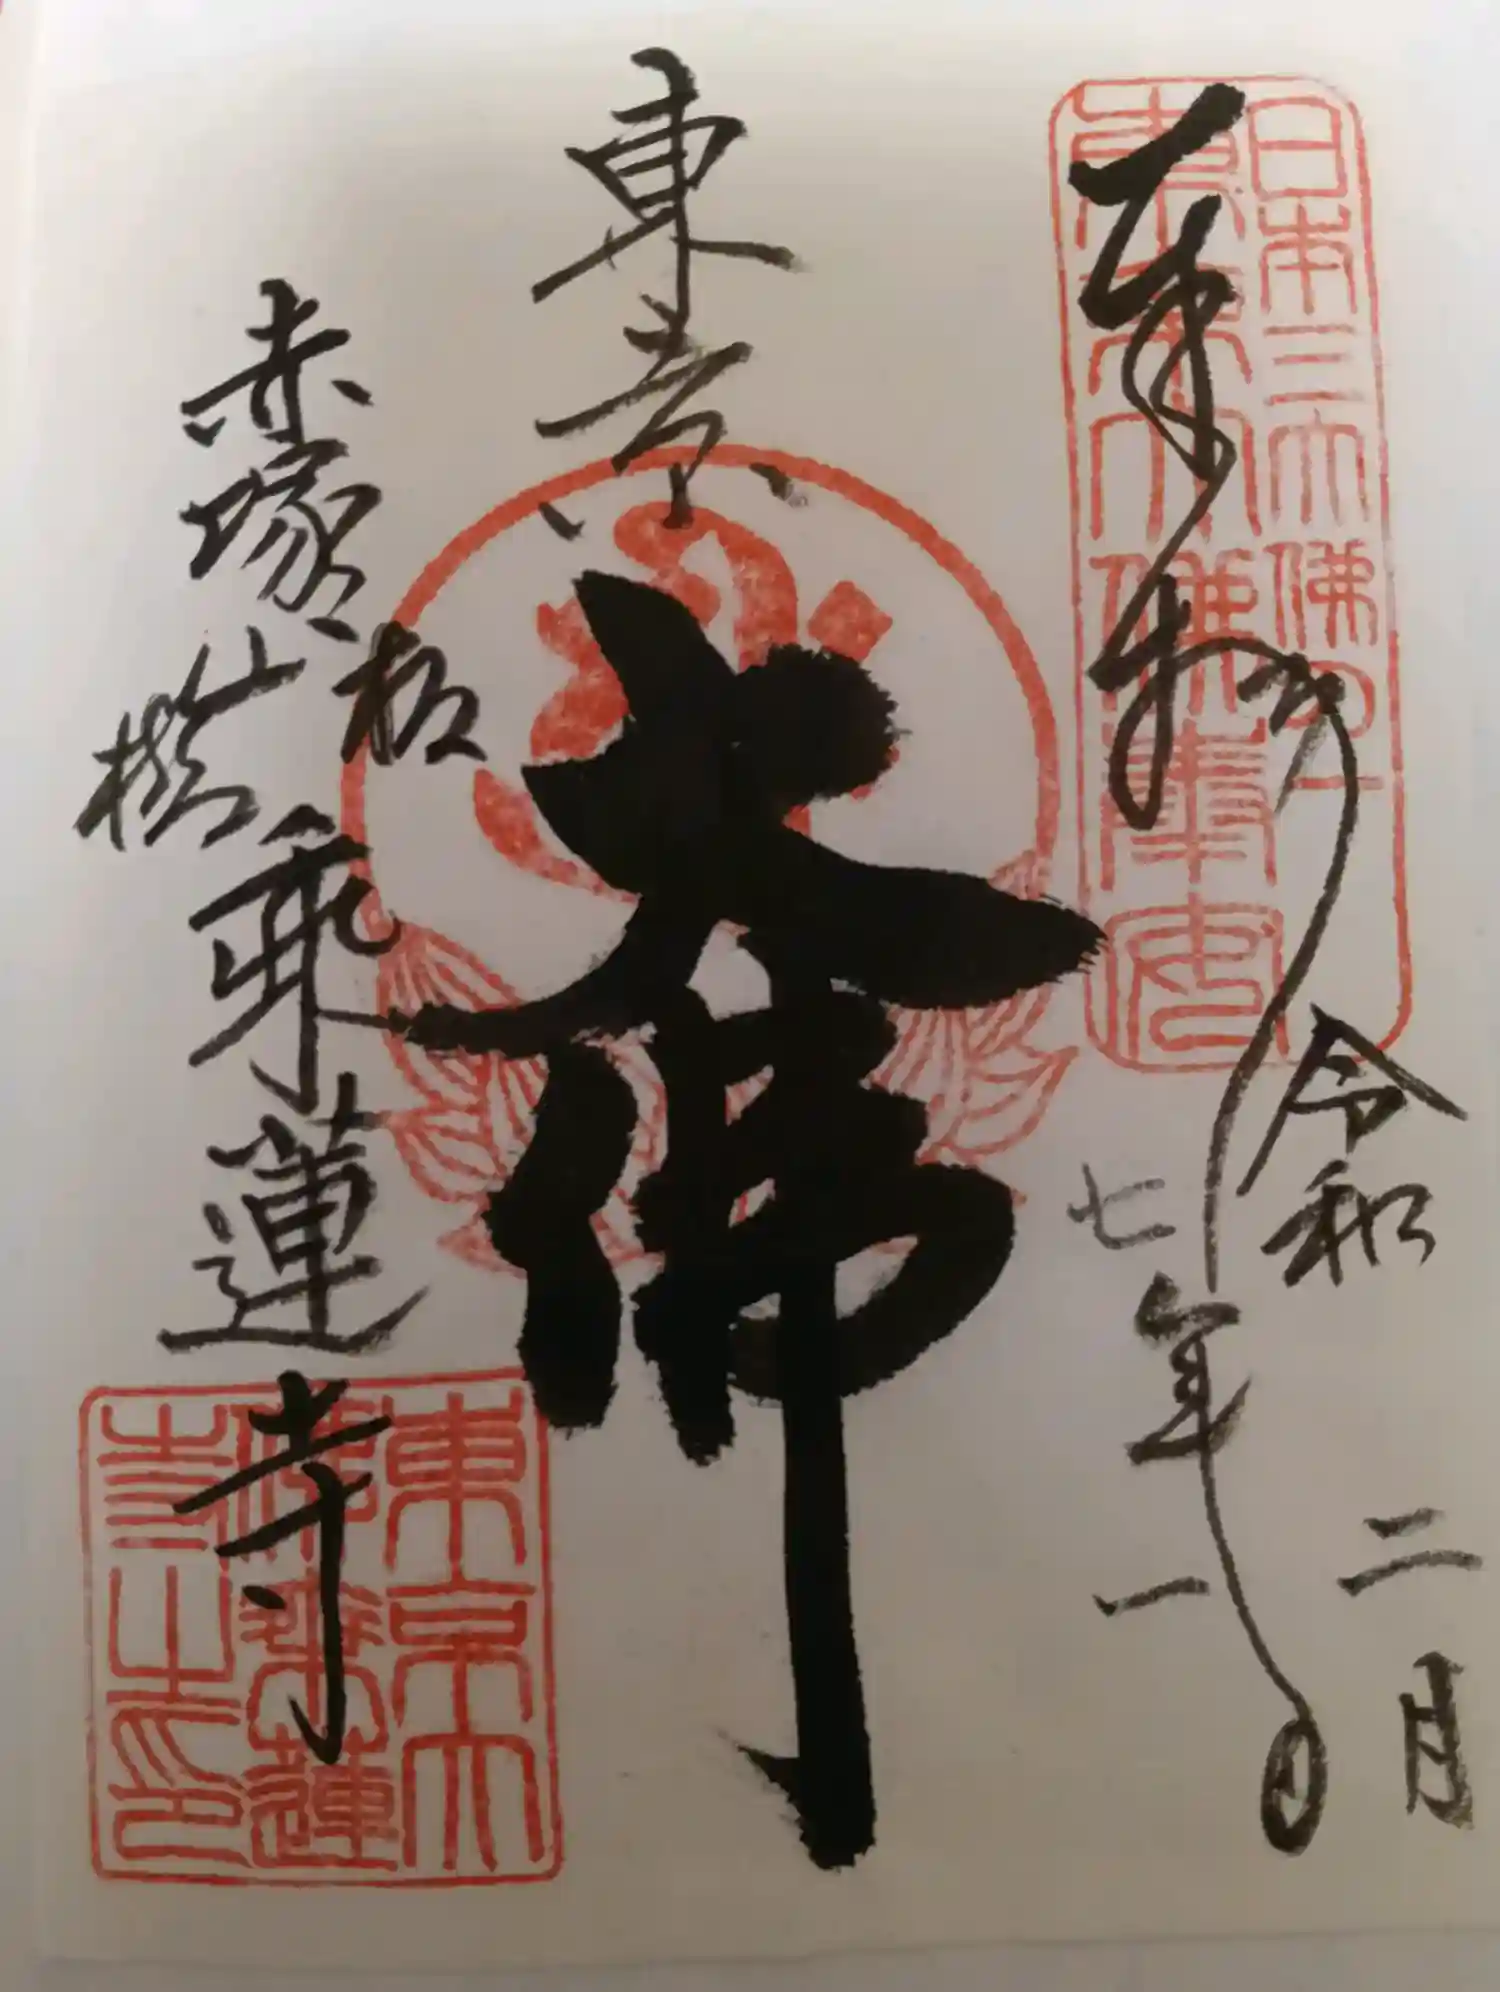 日本三大佛の一
東京大佛奉安
奉拝
令和
七年
二月
一日
東京
大佛
板
橋
赤塚山
乗蓮寺
東京大
佛乗蓮
寺之印